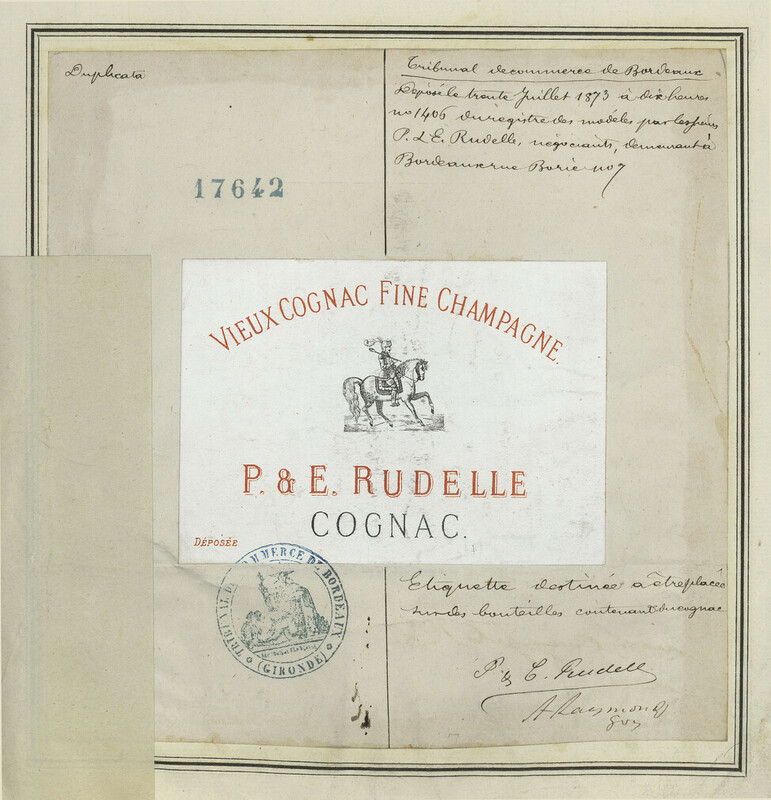 Duplicata
Tribunal de commerce de Bordeaux
Déposé le trente Juillet 1873 à dix heures
no 1406 du registre des modèles par les sieurs
P. & E. Rudelle, négociants, demeurant à
Bordeaux rue Borie no 7
17642
VIEUX COGNAC FINE CHAMPAGNE.
P. & E. RUDELLE
COGNAC.
DÉPOSÉE
TRIBUNAL DE COMMERCE DE BORDEAUX
(GIRONDE)
Etiquette destinée à être placée
sur des bouteilles contenant du cognac
P & E. Rudelle
A Raymond